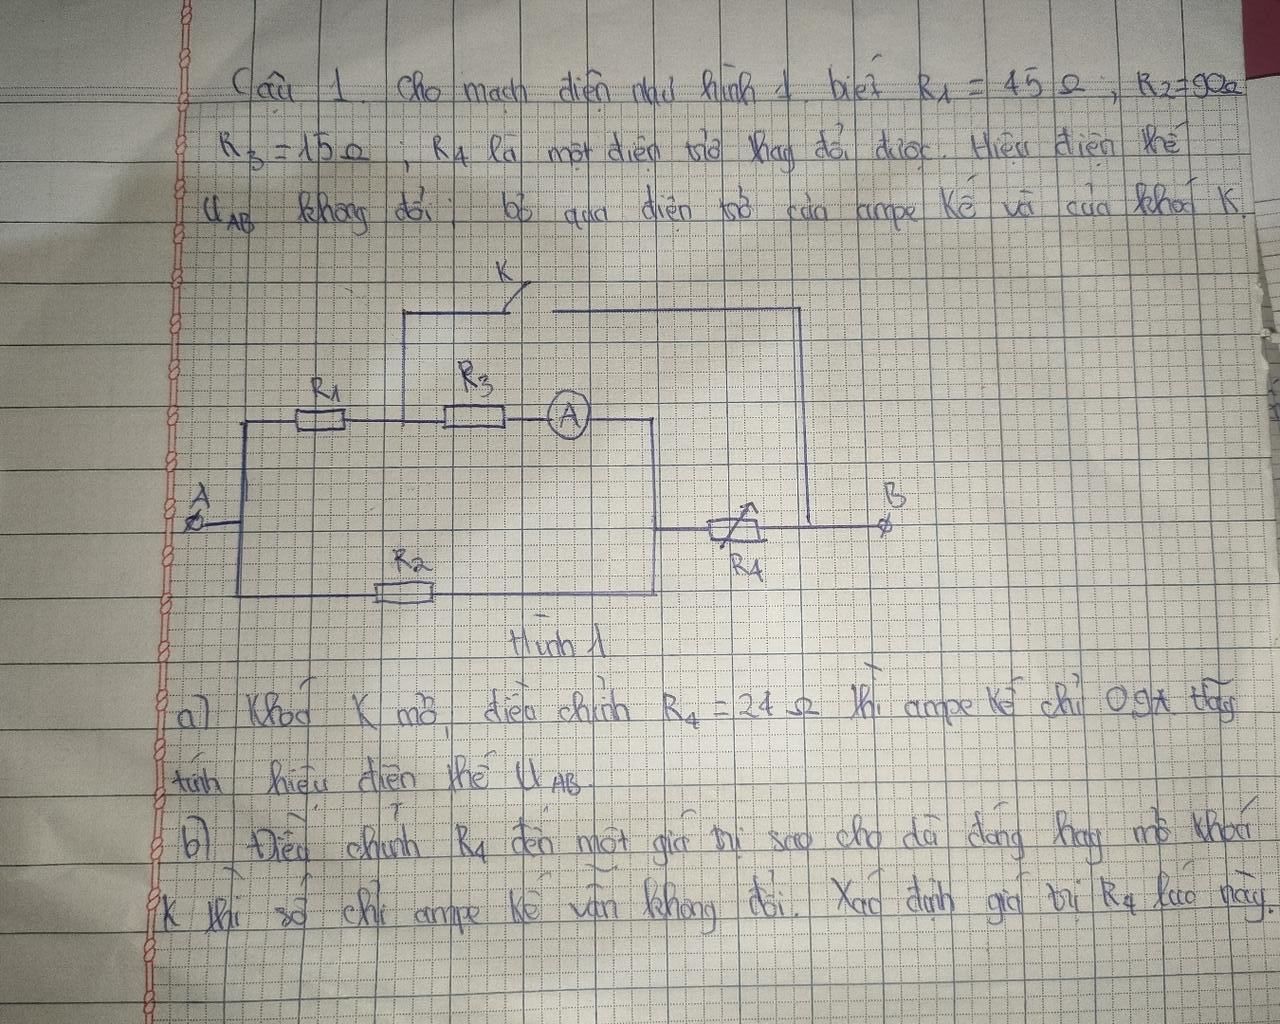 Câu 1. Cho mạch điện như hình 1. biết R1 = 45 Ω ; R2=90Ω
R3 = 15Ω ; R4 là một điện trở thay đổi được. Hiệu điện thế
UAB không đổi; bỏ qua điện trở của ampe kế và của khoá K.
K
R1
R3
A
A
B
R4
R2
Hình 1
a) Khoá K mở, điều chỉnh R4 = 24 Ω thì ampe kế chỉ 0,9A Hãy
tính hiệu điện thế UAB.
b) Điều chỉnh R4 đến một giá trị sao cho dù đóng hay mở khoá
K thì số chỉ ampe kế vẫn không đổi. Xác định giá trị R4 lúc này.